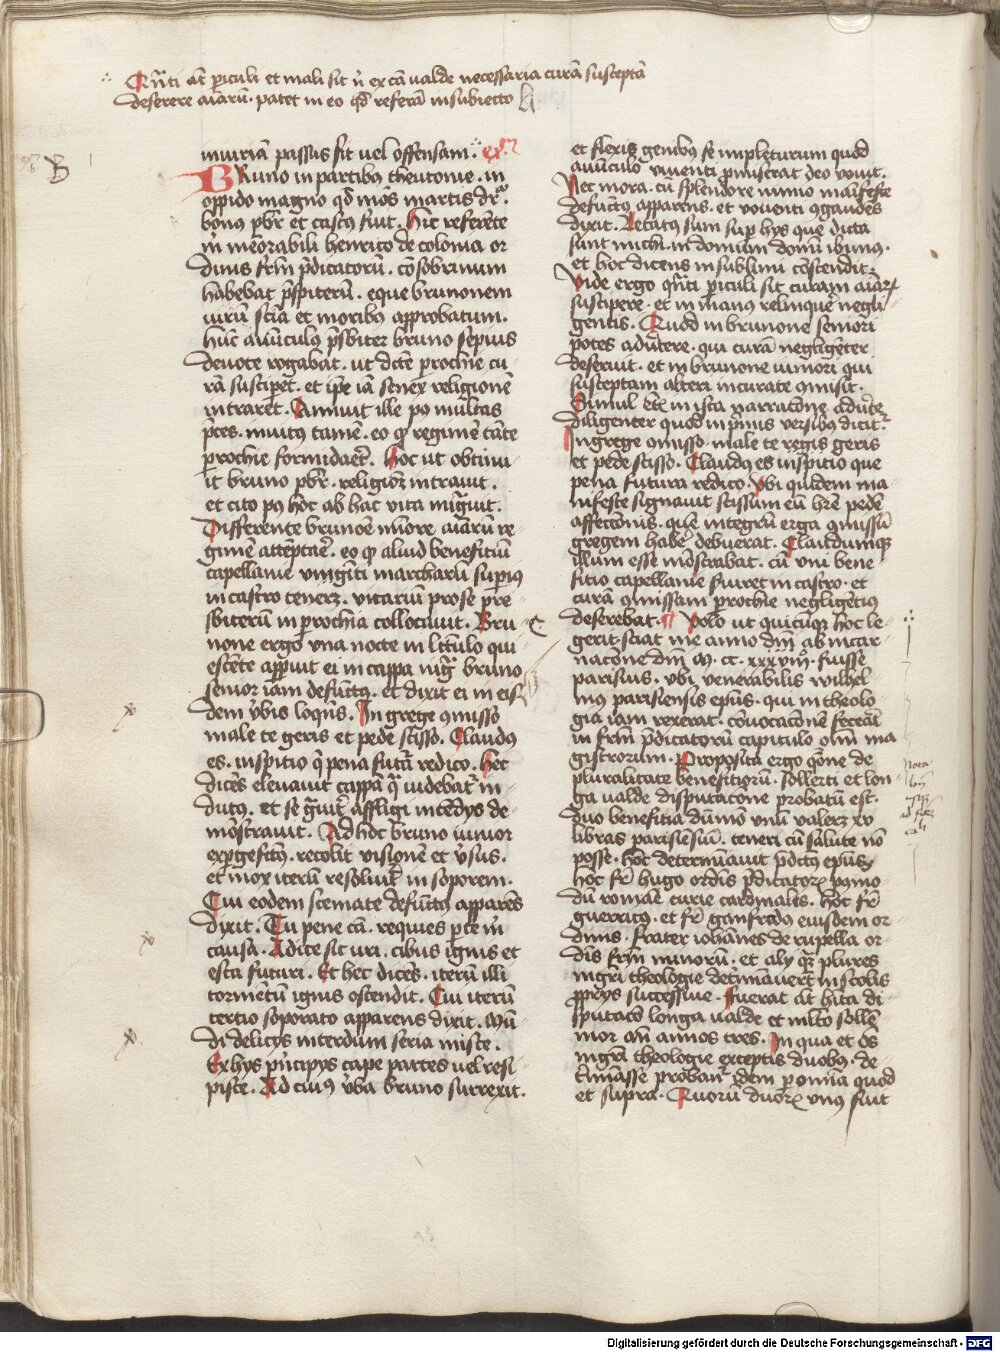 Qn̄ti aūt p̲iculi et mali sit ń ex cā valde necessaria curā susceptā
deserere aīarū · patet in eo qd̄ referā in subiecto
B
iniuriā passus sit vel offensam · ex.ᵐ
BRuno in partibus theutonie · in
oppido magno qd̄ mōs martis dr̄ ·
bonus pbr̄ et castus fuit · Hic referēte
m̄ mēorabili henrico de colonia or
dinis frm̄ p̄dicatorū · cōsobrinum
habebat p̄sbiterū · eque brunonem
virū sciā et moribus approbatum ·
hūc auūculū p̄sbiter bruno sepius
deuote rogabat · ut dc̄te prochie cu
rā susciperet · et ip̄e iā senex religionē
intraret · Annuit ille pꝰ multas
p̄ces · inuitus tamē · eo qꝫ regimē tāte
prochie formidaēt · Hoc ut obtinu
it bruno pbr̄ · religionē intrauit ·
et cito pꝰ hoc ab hac vita migrauit ·
Differente brunōe iuniore aīarū re
gimē attēptaē · eo qꝫ aliud benefitiū
capellanie viginti marcharū superius
in castro tenerꝫ · vicariū pro se p̄re
sbiterū in prochia collocauit · Bru C
none ergo vna nocte in lectulo qui
escēte apparuit ei in cappa nigra bruno
senior iam defunctus · et dixit ei in eis
dem v̄bis loquēs · In grege cōmisso
male te geris et pede scisso · Claudus
es · inspitio q̄ pena futura redico · Hec
dicēs eleuauit cappā qua videbatur in
dutus · et se grauiter affligi incendys de
mōstrauit · Ad hoc bruno iunior
expergefctūs · recolit visionē et v̄sus ·
et mox iterū resoluitur in soporem ·
Cui eodem scemate defunctus apparēs
dixit · Tu pene cā · requies p̲ te m̄
causā · Adice sit uri · cibus ignis et
esca futuri · Et hec dicēs · iterū illi
tormētū ignis ostendit · Cui iterū
tertio soporato apparens dixit · Mū
di delicys interdum seria misce ·
Ex hys p̄ncipys cape partes vel resi
pisce · Ad cuius v̄ba bruno surrexit ·
et flexis genibus se impleturum quod
auūculo viuenti p̲miserat deo vouit ·
Nec mora · cū splendore nimio maīfeste
defunctus apparens · et vouenti cōgaudēs
dixit · Letatus sum sup hys que dicta
sunt michi · in domum domī ibimus ·
et hoc dicens in sublimi cōscendit ·
Vide ergo qn̄ti p̲iculi sit curam aīarꝫ
suscipere · et in manus relinquere negli
gentis · Quod in brunone seniori
potes adūtere · qui curā negligenter
deseruit · et in brunone iuniori qui
susceptam alteri incurate cōmisit ·
Simul etiā in ista narracōne adūte
diligenter quod in p̄mis versibus dicitur ·
In grege cōmisso male te regis geris
et pede scisso · Claudus es inspitio que
pena futura redico · Vbi quidem ma
nifeste signauit scissum eū hr̄e pedē
affectōnis · quē integrū erga cōmissū
gregem habere debuerat · Claudumqꝫ
illum esse mōstrabat · cū vni bene
fitio capellanie seruiret in castro · et
curā cōmissam prochie negligētius
deserebat · ¶ Volo ut quicūqꝫ hoc le
gerit sciat me anno dn̄i ab incar
nacōne dn̄i M · cc · xxxviij° · fuisse
parisius · vbi venerabilis wilhel
mus parisiensis ep̄us · qui in theolo
gia iam rexerat · conuocacōnē fecerat
in frm̄ p̄dicatorū capitulo om̄ ma
gistrorum · Proposita ergo qōne de
pluralitate benefitiorū · sollerti et lon
ga valde disputacōne probatū est ·
duo benefitia dūmō vnū valerꝫ xv
libras parisiēsiū · teneri cū salute nō
posse · hoc determinauit p̄dictus ep̄us ·
hoc fr̄ hugo ordis p̄dicatorꝫ pꝰmo
dū romāe curie cardinalis · hoc fr̄
guerricus · et fr̄ ganfredus eiusdem or
dinis · frater iohānes de rupella or
dīs frm̄ minorū · et aly quam plures
mgr̄i theologie det̄minauerūt in scolis
pprys successiue · Fuerat aūt hīta di
sputacō longa valde et mlto sollē
nior an̄ annos tres · In qua et oēs
mgr̄i theologie exceptis duobus · de
t̄minasse proban̄t idem per omnia quod
et supra · Quorū duorꝫ vnus fuit
Nota
Digitalisierung gefördert durch die Deutsche Forschungsgemeinschaft - DFG